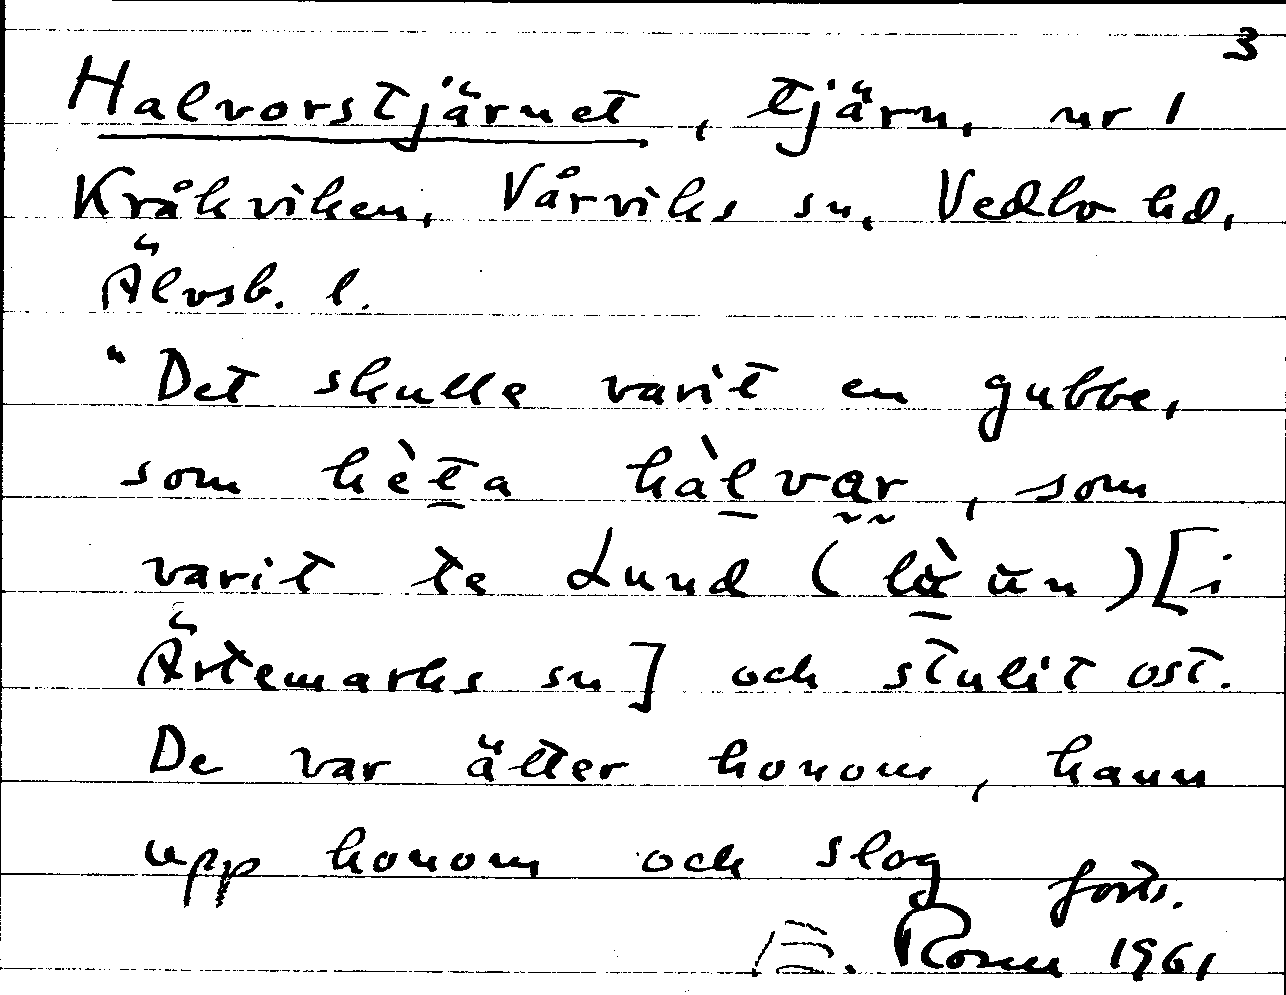 3
Halvorstjärnet, tjärn, nr 1
Kråkviken, Vårviks sn, Vedbo hd,
Älvsb. l.
"Det skulle varit en gubbe,
som hèta hàlvar, som
varit te Lund (       ) [i
Ärtemarks sn] och stulit ost.
De var ätter honom, hann
upp honom och slog forts.
E. Rosen 1961